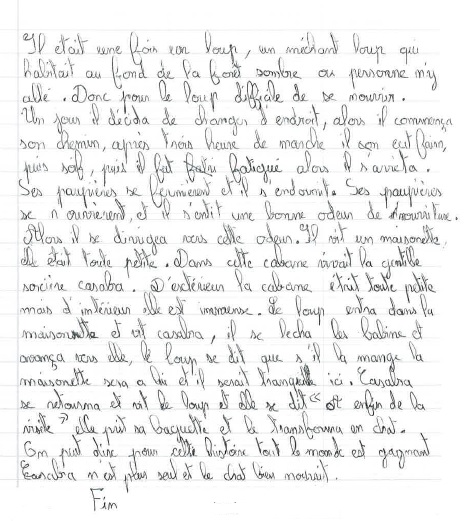 Il était une fois un loup, un méchant loup qui
habitait au fond de la forêt sombre ou personne n'y
allé. Donc pour le loup difficile de se nourrir.
Un jour il décida de changer d'endroit, alors il commença
son chemin, après trois heure de marche il son eut faim,
puis soif, puis il fut fatigué alors il s'arrêta.
Ses paupières se fermèrent et il s'endormit. Ses paupières
se r'ouvrièrent, et il s'entit une bonne odeur de nourriture.
Alors il se dirigea vers cette odeur. Il vit un maisonette,
elle était toute petite. Dans cette cabane vivait la gentille
sorcière casabra. D'extérieur la cabane était toute petite
mais d'intérieur elle est immense. Le loup entra dans la
maisonette et vit casabra, il se lecha les babine et
avança vers elle, le loup se dit que s'il la mange la
maisonette sera a lui et il serait tranquille ici. Casabra
se retourna et vit le loup et elle se dit " enfin de la
visite " elle prit sa baguette et le transforma en chat.
On peut dire pour cette histoire tout le monde est gagnant
Casabra n'est plus seul et le chat bien
Fin